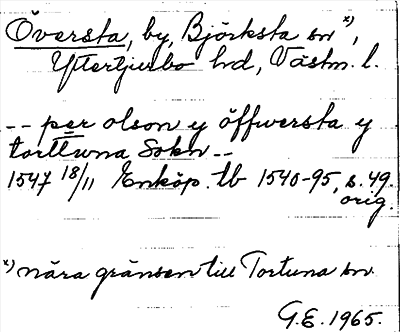 Översta, by, Björksta sn x),
Yttertjurbo hd, Västm. l.
-- per olson y öffwersta y
torttuna Sokn --
1547 18/11 Enköp. tb 1540-95, s. 49.
orig.
x) nära gränsen till Tortuna sn.
G.E. 1965.